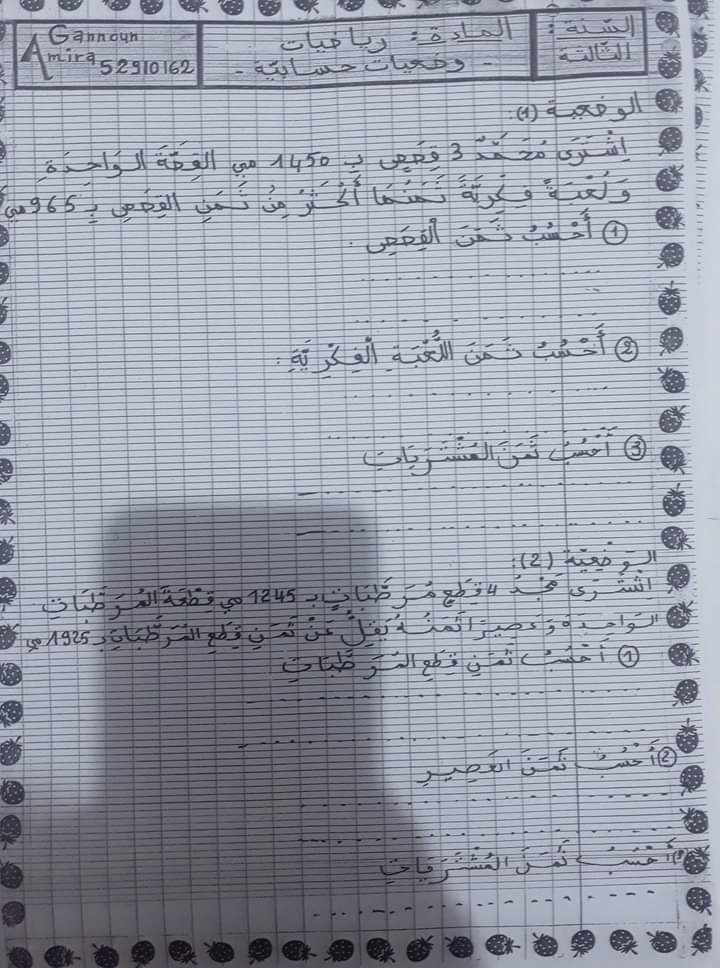 السّنة :
الثالثة
المادة: رياضيات
- وضعيات حسابيّة -
Gannoun
Amira 52910162
الوضعية (1):
اِشْتَرَى مُحَمَّدٌ 3 قِصَصٍ بِـ 1450 مي القِصَّةَ الوَاحِدَةِ
وَلُعْبَةً فِكْرِيَّةً ثَمَنُهَا أَكْثَرُ مِنْ ثَمَنِ القِصَصِ بِـ 965 مي
① أَحْسُبُ ثَمَنَ القِصَصِ .
② أَحْسُبُ ثَمَنَ اللُّعْبَةِ الْفِكْرِيَّةِ :
③ أَحْسُبُ ثَمَنَ المُشْتَرَيَاتِ
الوضْعِيّة (2):
اشْتَرَى مَجْدُ 4 قِطَعِ مُرَطَّبَاتٍ بـ 1245 مي قِطْعَةَ المُرَطَّبَاتِ
الوَاحِدَة وَعَصِيرَا ثَمَنُهُ يَقِلُّ عَنْ ثَمَنِ قِطَعِ المُرَطَّبَاتِ بـ 1925 مي
① أَحْسُبُ ثَمَنِ قِطَعِ المُرَطَّبَاتِ
② أَحْسُبُ ثَمَنَ العَصِيرِ
أَحْسُبُ ثَمَنَ المُشْتَرَيَاتِ